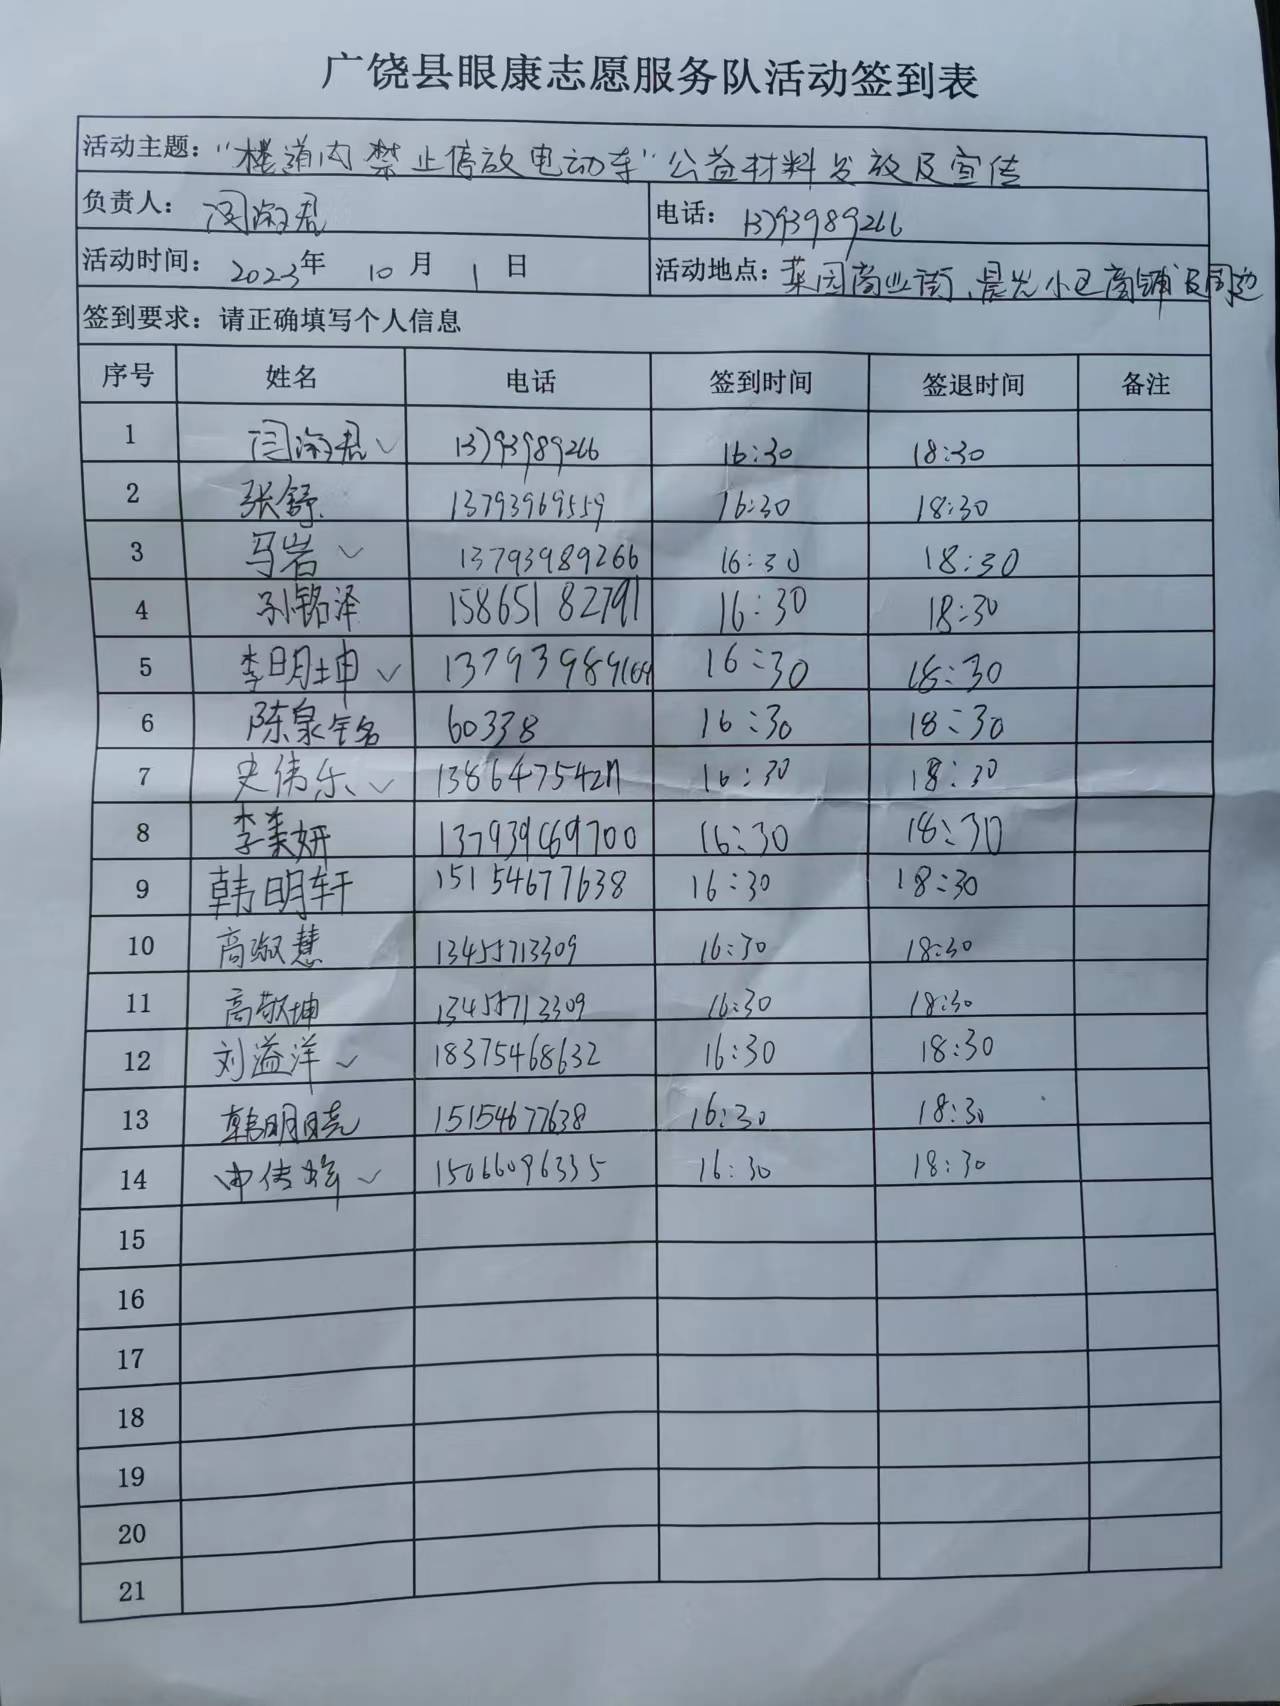 广饶县眼康志愿服务队活动签到表
活动主题："楼道内禁止停放电动车"公益材料发放及宣传
负责人：闫淑君 电话：13793989266
活动时间：2023年 10月 1日 活动地点：菜园商业街、晨光小区商铺及周边
签到要求：请正确填写个人信息
序号 姓名 电话 签到时间 签退时间 备注
1 闫淑君✓ 13793989266 16:30 18:30
2 张舒 13793969559 16:30 18:30
3 马岩✓ 13793989266 16:30 18:30
4 孙铭泽 15865182791 16:30 18:30
5 李明坤✓ 16:30 18:30
6 陈泉铭 60338 16:30 18:30
7 史伟乐✓ 16:30 18:30
8 李美妍 16:30 18:30
9 韩明轩 15154677638 16:30 18:30
10 高淑慧 13455713309 16:30 18:30
11 高敬坤 13455713309 16:30 18:30
12 刘溢洋✓ 18375468632 16:30 18:30
13 韩明晓 15154677638 16:30 18:30
14 15066096335 16:30 18:30
15
16
17
18
19
20
21